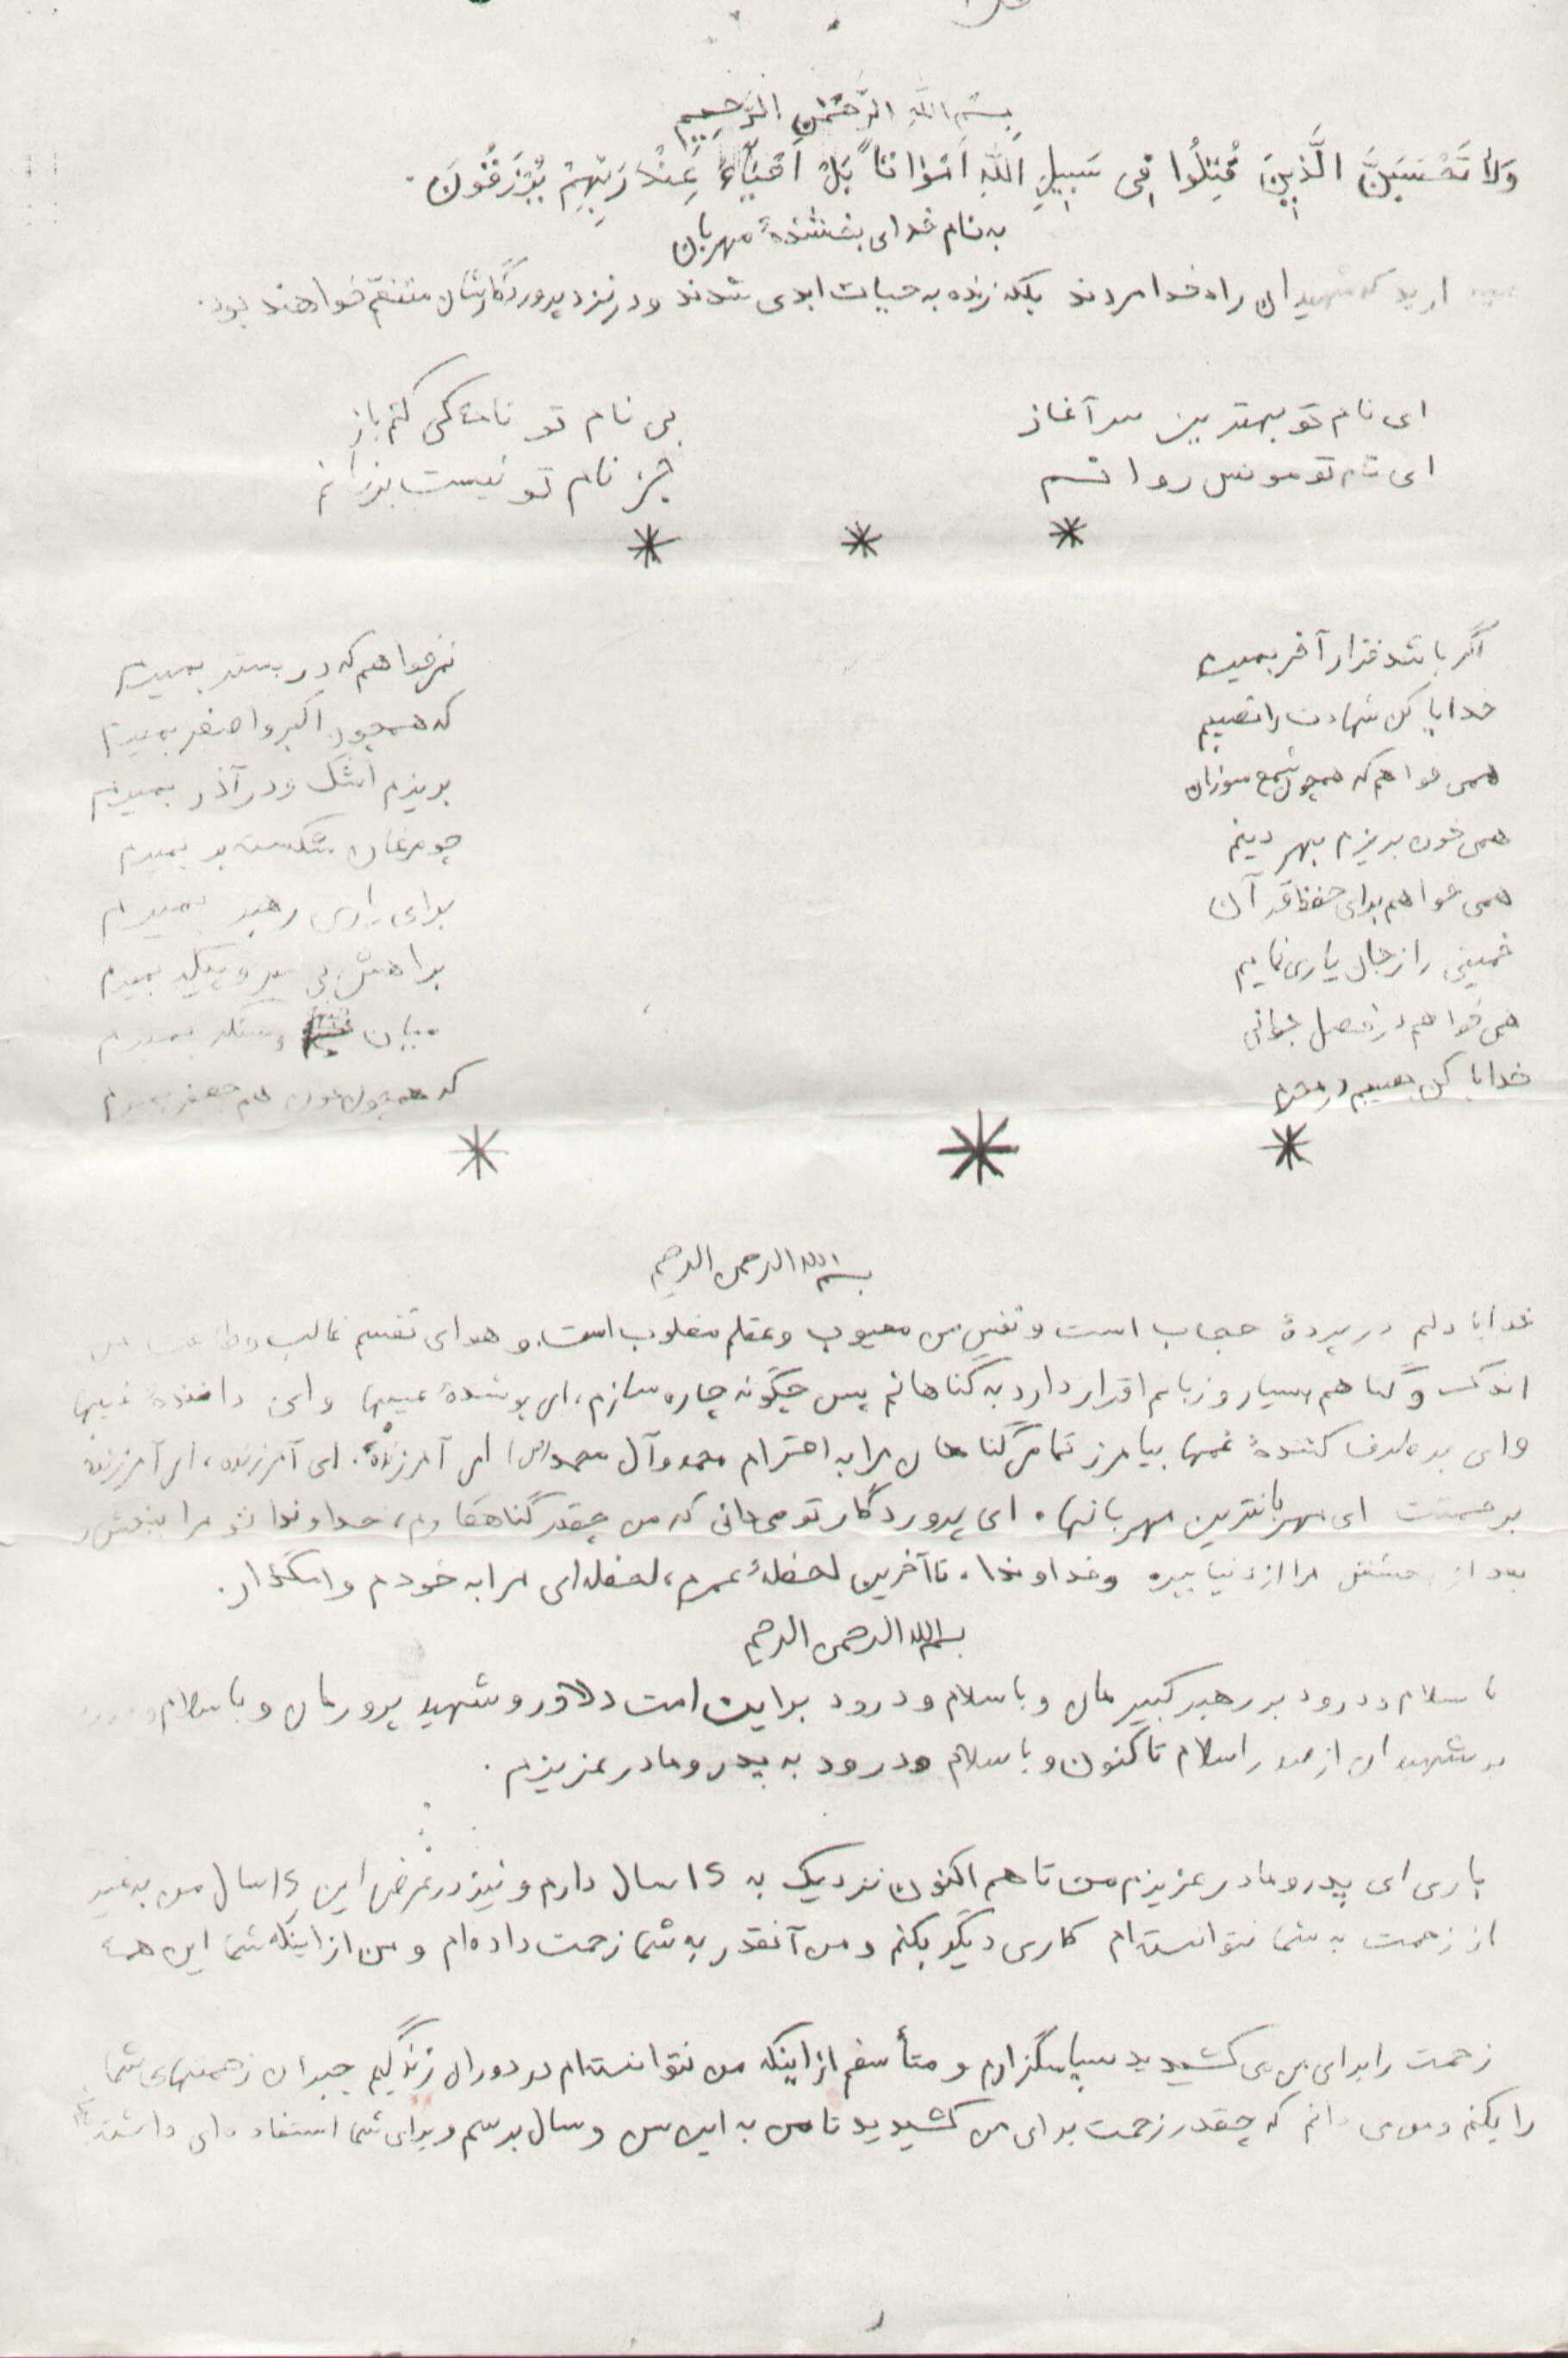 بِسْمِ اللَّهِ الرَّحْمٰنِ الرَّحِيمِ
وَلاٰ تَحْسَبَنَّ الَّذِينَ قُتِلُوا فِى سَبِيلِ اللّٰهِ اَمْوٰاتاً بَلْ اَحْيٰاءٌ عِنْدَ رَبِّهِمْ يُرْزَقُونَ.
به نام خدای بخشندهٔ مهربان
که شهیدان راه خدا مردند بلکه زنده به حیات ابدی شدند و در نزد پروردگارشان متنعّم خواهند بود.
ای نام تو بهترین سرآغاز بی نام تو نامه کی کنم باز
ای نام تو مونس روانم جز نام تو نیست بر زبانم
* * *
اگر باشد قرار آخر بمیرم نمی‌خواهم که در بستر بمیرم
خدایا کن شهادت را نصیبم که همچون اکبر و اصغر بمیرم
همی خواهم که همچون شمع سوزان بریزم اشک و در آذر بمیرم
همی خون بریزم بهر دینم چو مرغان شکسته پر بمیرم
همی خواهم برای حفظ قرآن برای یاری رهبر بمیرم
خمینی را ز جان یاری نمایم براهش بی سر و پیکر بمیرم
همی خواهم در فصل جوانی میان سنگر بمیرم
خدایا کن نصیبم در محرم که همچون عون هم جعفر بمیرم
* * *
بسم الله الرحمن الرحیم
خدایا دلم در پردهٔ حجاب است و نفس من معیوب و عقلم مغلوب است. و هوای نفسم غالب و طاعت من
اندک و گناهم بسیار و زبانم اقرار دارد به گناهانم پس چگونه چاره سازم، ای پوشندهٔ عیبها و ای دانندهٔ غیبها
و ای برطرف کنندهٔ غمها بیامرز تمامی گناهان مرا به احترام محمد و آل محمد(ص) ای آمرزنده، ای آمرزنده، ای آمرزنده
برحمتت ای مهربانترین مهربانها. ای پروردگار تو می‌دانی که من چقدر گناهکارم، خداوندا تو مرا ببخش و
بعد از بخشش مرا از دنیا ببر و خداوندا، تا آخرین لحظهٔ عمرم، لحظه‌ای مرا به خودم وامگذار.
بسم الله الرحمن الرحیم
با سلام و درود بر رهبر کبیرمان و با سلام و درود بر این امت دلاور و شهید پرورمان و با سلام و درود
بر شهیدان از صدر اسلام تا کنون و با سلام و درود به پدر و مادر عزیزم.
باری ای پدر و مادر عزیزم من تا هم اکنون نزدیک به ۱۵ سال دارم و نیز در عرض این ۱۵ سال من به غیر
از زحمت به شما نتوانسته‌ام کاری دیگر بکنم و من آنقدر به شما زحمت داده‌ام و من از اینکه شما این همه
زحمت را برای من می کشیدید سپاسگزارم و متأسفم از اینکه من نتوانسته‌ام در دوران زندگیم جبران زحمتهای شما
را بکنم و من می دانم که چقدر زحمت برای من کشیدید تا من به این سن و سال برسم و برای شما استفاده‌ای داشته
۱